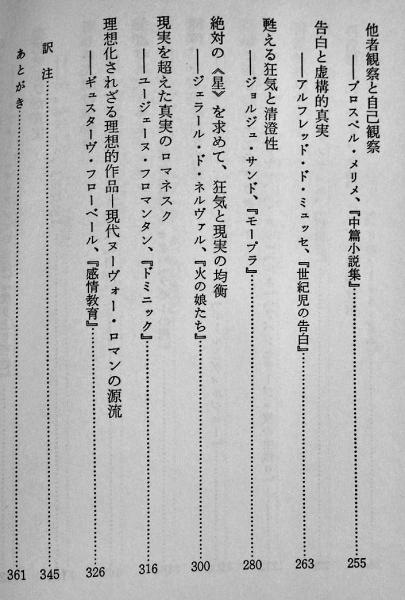 他者観察と自己観察
――プロスペル・メリメ、『中篇小説集』……………………255
告白と虚構的真実
――アルフレッド・ド・ミュッセ、『世紀児の告白』……………………263
甦える狂気と清澄性
――ジョルジュ・サンド、『モープラ』……………………280
絶対の《星》を求めて、狂気と現実の均衡
――ジェラール・ド・ネルヴァル、『火の娘たち』……………………300
現実を超えた真実のロマネスク
――ユージェーヌ・フロマンタン、『ドミニック』……………………316
理想化されざる理想的作品―現代ヌーヴォー・ロマンの源流
――ギュスターヴ・フローベール、『感情教育』……………………326
訳注……………………345
あとがき……………………361